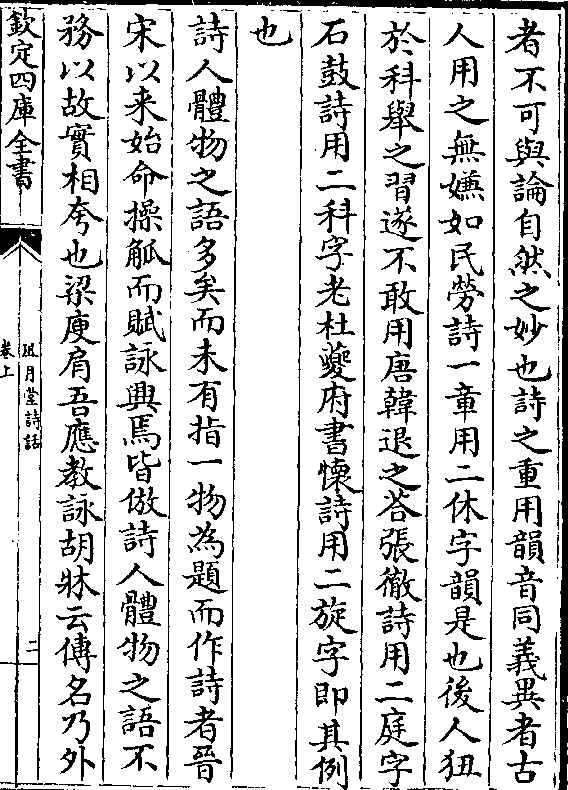 者不可與論自然之妙也詩之重用韻音同義異者古
人用之無嫌如民勞詩一章用二休字韻是也後人狃
於科舉之習遂不敢用唐韓退之荅張徹詩用二庭字
石鼓詩用二科字老杜夔府書懷詩用二旋字即其例
也
詩人體物之語多矣而未有指一物為題而作詩者晉
宋以来始命操觚而賦詠興焉皆倣詩人體物之語不
務以故實相夸也梁庾肩吾應教詠胡牀云傳名乃外
欽定四庫全書
風月堂詩話
卷上
二